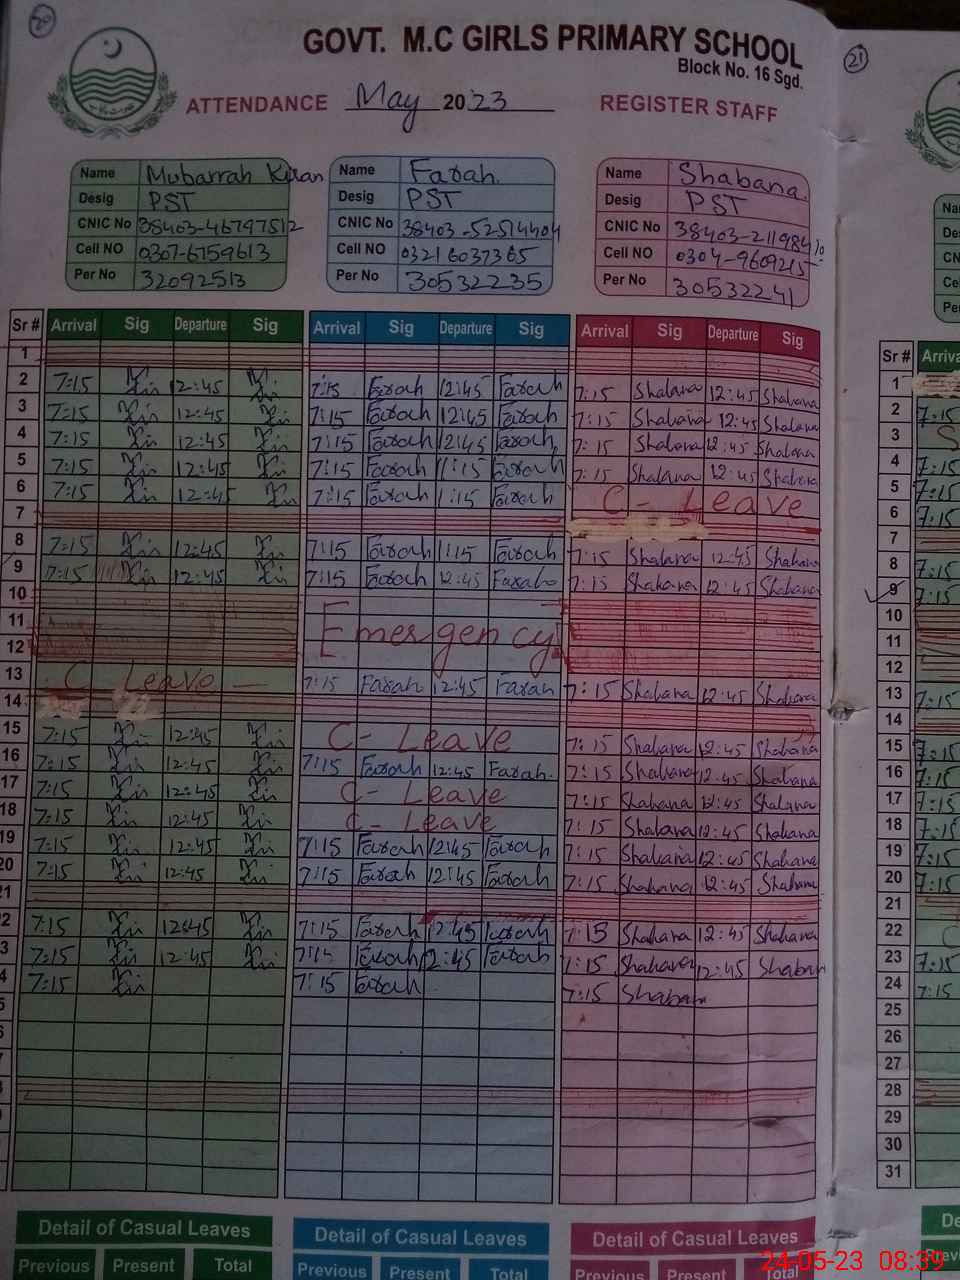 20
GOVT. M.C GIRLS PRIMARY SCHOOL
Block No. 16 Sgd.
21
ATTENDANCE May 2023 REGISTER STAFF
Name Mubarrah Kiran
Desig PST
CNIC No 38403-4679751 2
Cell NO 0307-6759613
Per No 32092513
Name Farah.
Desig PST
CNIC No 38403-52514404
Cell NO 0321 6037365
Per No 30532235
Name Shabana.
Desig PST
CNIC No 38403-211984
Cell NO 0304-9609215
Per No 30532241
Sr # Arrival Sig Departure Sig Arrival Sig Departure Sig Arrival Sig Departure Sig
1
2 7:15 12:45 7:15 Farah 12:45 Farah 7:15 Shabana 12:45 Shabana
3 7:15 12:45 7:15 Farah 12:45 Farah 7:15 Shabana 12:45 Shabana
4 7:15 12:45 7:15 Farah 12:45 Farah 7:15 Shabana 12:45 Shabana
5 7:15 12:45 7:15 Farah 1:15 Farah 7:15 Shabana 12:45 Shabana
6 7:15 12:45 7:15 Farah 1:15 Farah C - Leave
7
8 7:15 12:45 7:15 Farah 1:15 Farah 7:15 Shabana 12:45 Shabana
9 7:15 12:45 7:15 Farah 12:45 Farah 7:15 Shabana 12:45 Shabana
10
11 Emergency
12
13 C Leave 7:15 Farah 12:45 Farah 7:15 Shabana 12:45 Shabana
14
15 7:15 12:45 C - Leave 7:15 Shabana 12:45 Shabana
16 7:15 12:45 7:15 Farah 12:45 Farah. 7:15 Shabana 12:45 Shabana
17 7:15 12:45 C - Leave 7:15 Shabana 12:45 Shabana
18 7:15 12:45 C - Leave 7:15 Shabana 12:45 Shabana
19 7:15 12:45 7:15 Farah 12:45 Farah 7:15 Shabana 12:45 Shabana
20 7:15 12:45 7:15 Farah 12:45 Farah 7:15 Shabana 12:45 Shabana
21
2 7:15 12:45 7:15 Farah 12:45 Farah 7:15 Shabana 12:45 Shabana
3 7:15 12:45 7:15 Farah 12:45 Farah 7:15 Shabana 12:45 Shaban
4 7:15 7:15 Farah 7:15 Shaban
5
6
7
8
9
0
Detail of Casual Leaves Detail of Casual Leaves Detail of Casual Leaves
Previous Present Total Previous Present Total Previous Present Total
Sr # Arriva
1
2 7:15
3 S
4 7:15
5 7:15
6 7:15
7
8 7:15
9 7:15
10
11
12
13 7:15
14
15 7:15
16 7:15
17 7:15
18 7:15
19 7:15
20 7:15
21
22 C
23 7:15
24 7:15
25
26
27
28
29
30
31
De
Previ
24-05-23 08:39